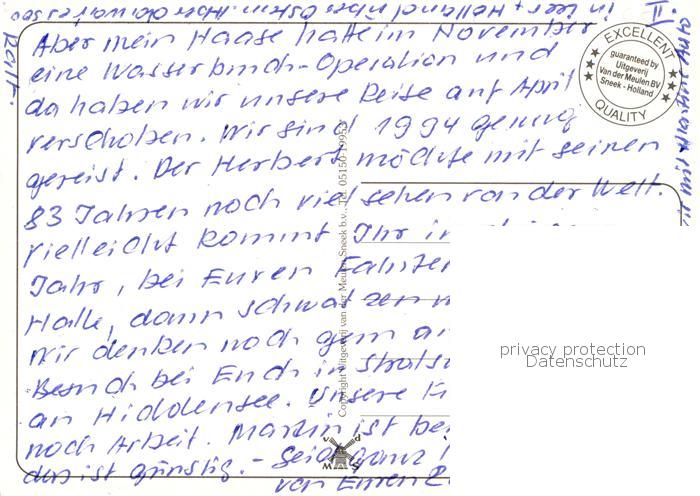 in Leer + Holland über Ostern. Aber da war es so
kalt.
II
Aber mein Haase hatte im November
eine Wasserbruch-Operation und
da haben wir unsere Reise auf April
verschoben. Wir sind 1994 genug
gereist. Der Herbert möchte mit seinen
83 Jahren noch viel sehen von der Welt.
Vielleicht kommt Ihr in
Jahr, bei Euren Fahrten
Halle, dann schwatzen
Wir denken noch gern an
Besuch bei Euch in Strals
an Hiddensee. Unsere
noch Arbeit. Martin ist bei
das ist günstig. - Seid ganz
von Euren
EXCELLENT
guaranteed by
Uitgeverij
Van der Meulen BV
Sneek - Holland
QUALITY
Copyright Uitgeverij van der Meulen Sneek b.v., Tel. 05150-19952
v d
W S
privacy protection
Datenschutz